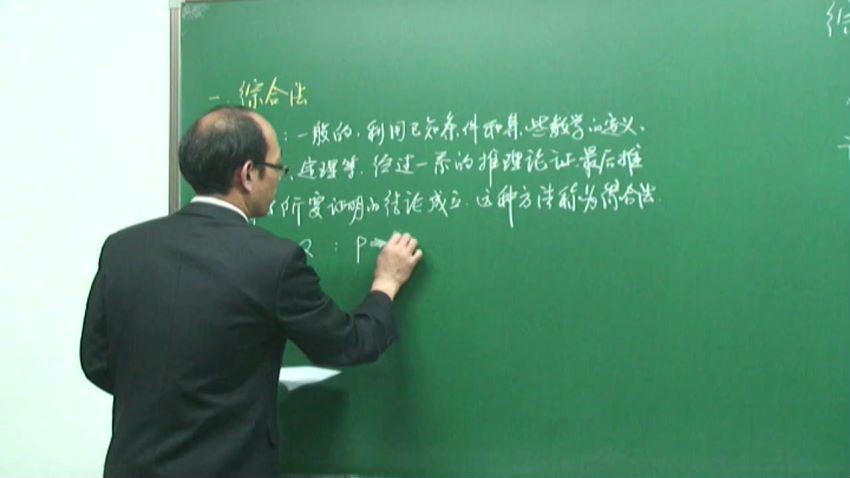 一.综合法
:一般的.利用已知条件和某些数学的定义、
、定理等.经过一系的推理论证最后推
所要证明的结论成立.这种方法称为综合法.
: P
综